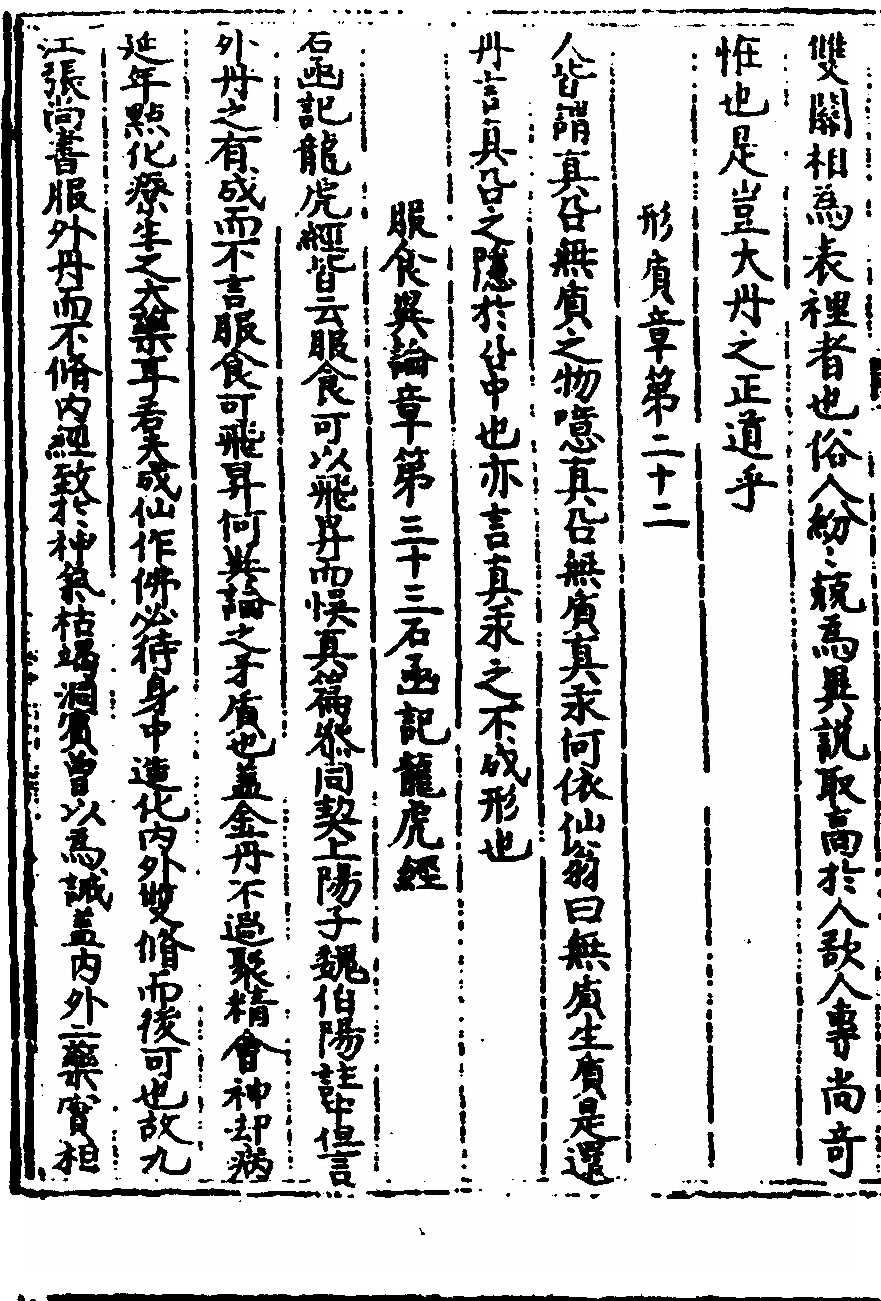 雙關相為表裡者也俗人紛〻競為異説取高於人歆人專尚奇
恠也是豈大丹之正道乎
形質章第二十二
人皆謂真鉛無質之物噫真鉛無質真汞何依仙翁曰無質生質是還
丹言真鉛之隱於鉛中也亦言真汞之不成形也
服食異論章第三十三石函記龍虎經
石函記龍虎經皆云服食可以飛昇而悞真篇叅同契上陽子魏伯陽註中但言
外丹之有成而不言服食可飛昇何其論之矛盾也盖金丹不過聚精會神却病
延年點化療生之大藥耳若夫成仙作佛必待身中造化内外雙脩而後可也故九
江張尚書服外丹而不脩内經致於神氣枯竭洞賓曾以為誡盖内外二藥實相